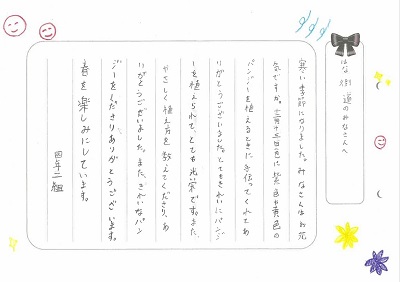 はな街道のみなさんへ
寒い季節になりました。みなさんはお元
気ですか。十二月十三日に紫色や黄色の
パンジーを植えるときに手伝ってくれてあ
りがとうございました。とてもきれいにパンジ
ーを植えられて、とても光栄です。また、
やさしく植え方を教えてくださり、あ
りがとうございました。また、きれいなパン
ジーをくださりありがとうございます。
春を楽しみにしています。
四年二組